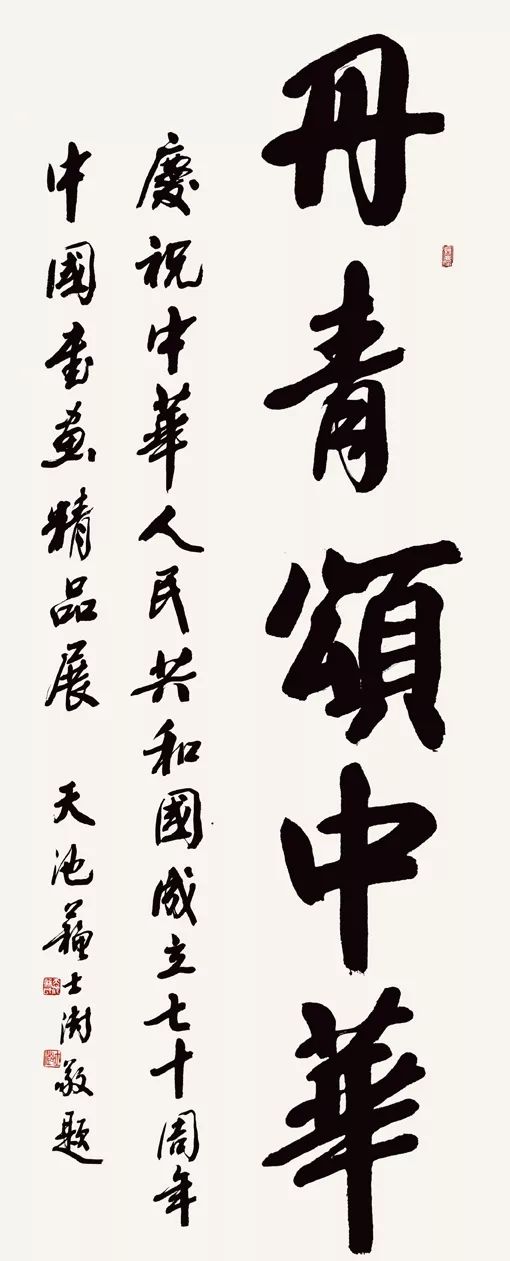 丹青頌中華
慶祝中華人民共和國成立七十周年
中國書畫精品展 天池蘇士澍敬題